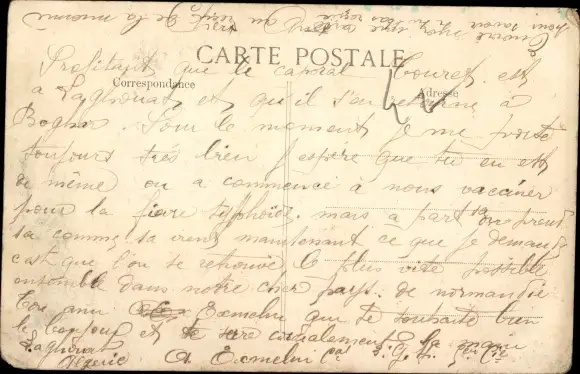 CARTE POSTALE
Correspondance
Adresse
Profitant que le caporal Couret est
a Laghouat et qu'il s'en retourne à
Boghar. Pour le moment je me porte
toujours très bien j'espère que tu en est
de même on a commence à nous vacciner
pour la fievre tiffhoïde. mais a part sa on prend
sa comme sa vient maintenant ce que je demande
c'est que l'on se retrouve le plus vite possible
ensemble dans notre cher pays de normandie
ton ami Exmelin que te souhaite bien
le bonjour et te serre cordialement la main
Laghouat
Algerie
A Exmelin